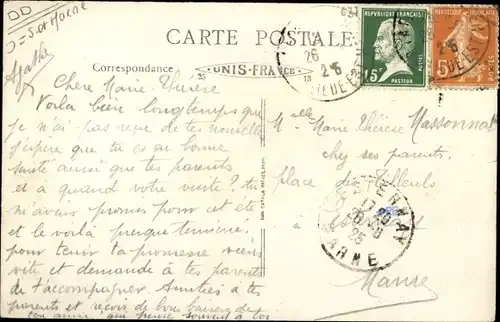 DD
D = S. et Marne
Agathe
CARTE POSTALE
Correspondance
UNIS-FRANCE
REPUBLIQUE FRANÇAISE
15c
PASTEUR
POSTES
5
2-5
26
Chère Marie Thérèse
Voilà bien longtemps que
je n'ai pas reçu de tes nouvelles
j'espère que tu es en bonne
santé ainsi que tes parents
et à quand votre visite? tu
m'avais promis pour cet été
et le voilà presque terminé.
pour tenir ta promesse viens
vite et demande à tes parents
de t'accompagner. Amitiés à tes
parents et reçois de bons baisers de
ton amie qui pense souvent à toi
Melle Marie Thérèse Massonnat
chez ses parents
place des Tilleuls
à
EPERNAY
17 30
25
MARNE
Marne